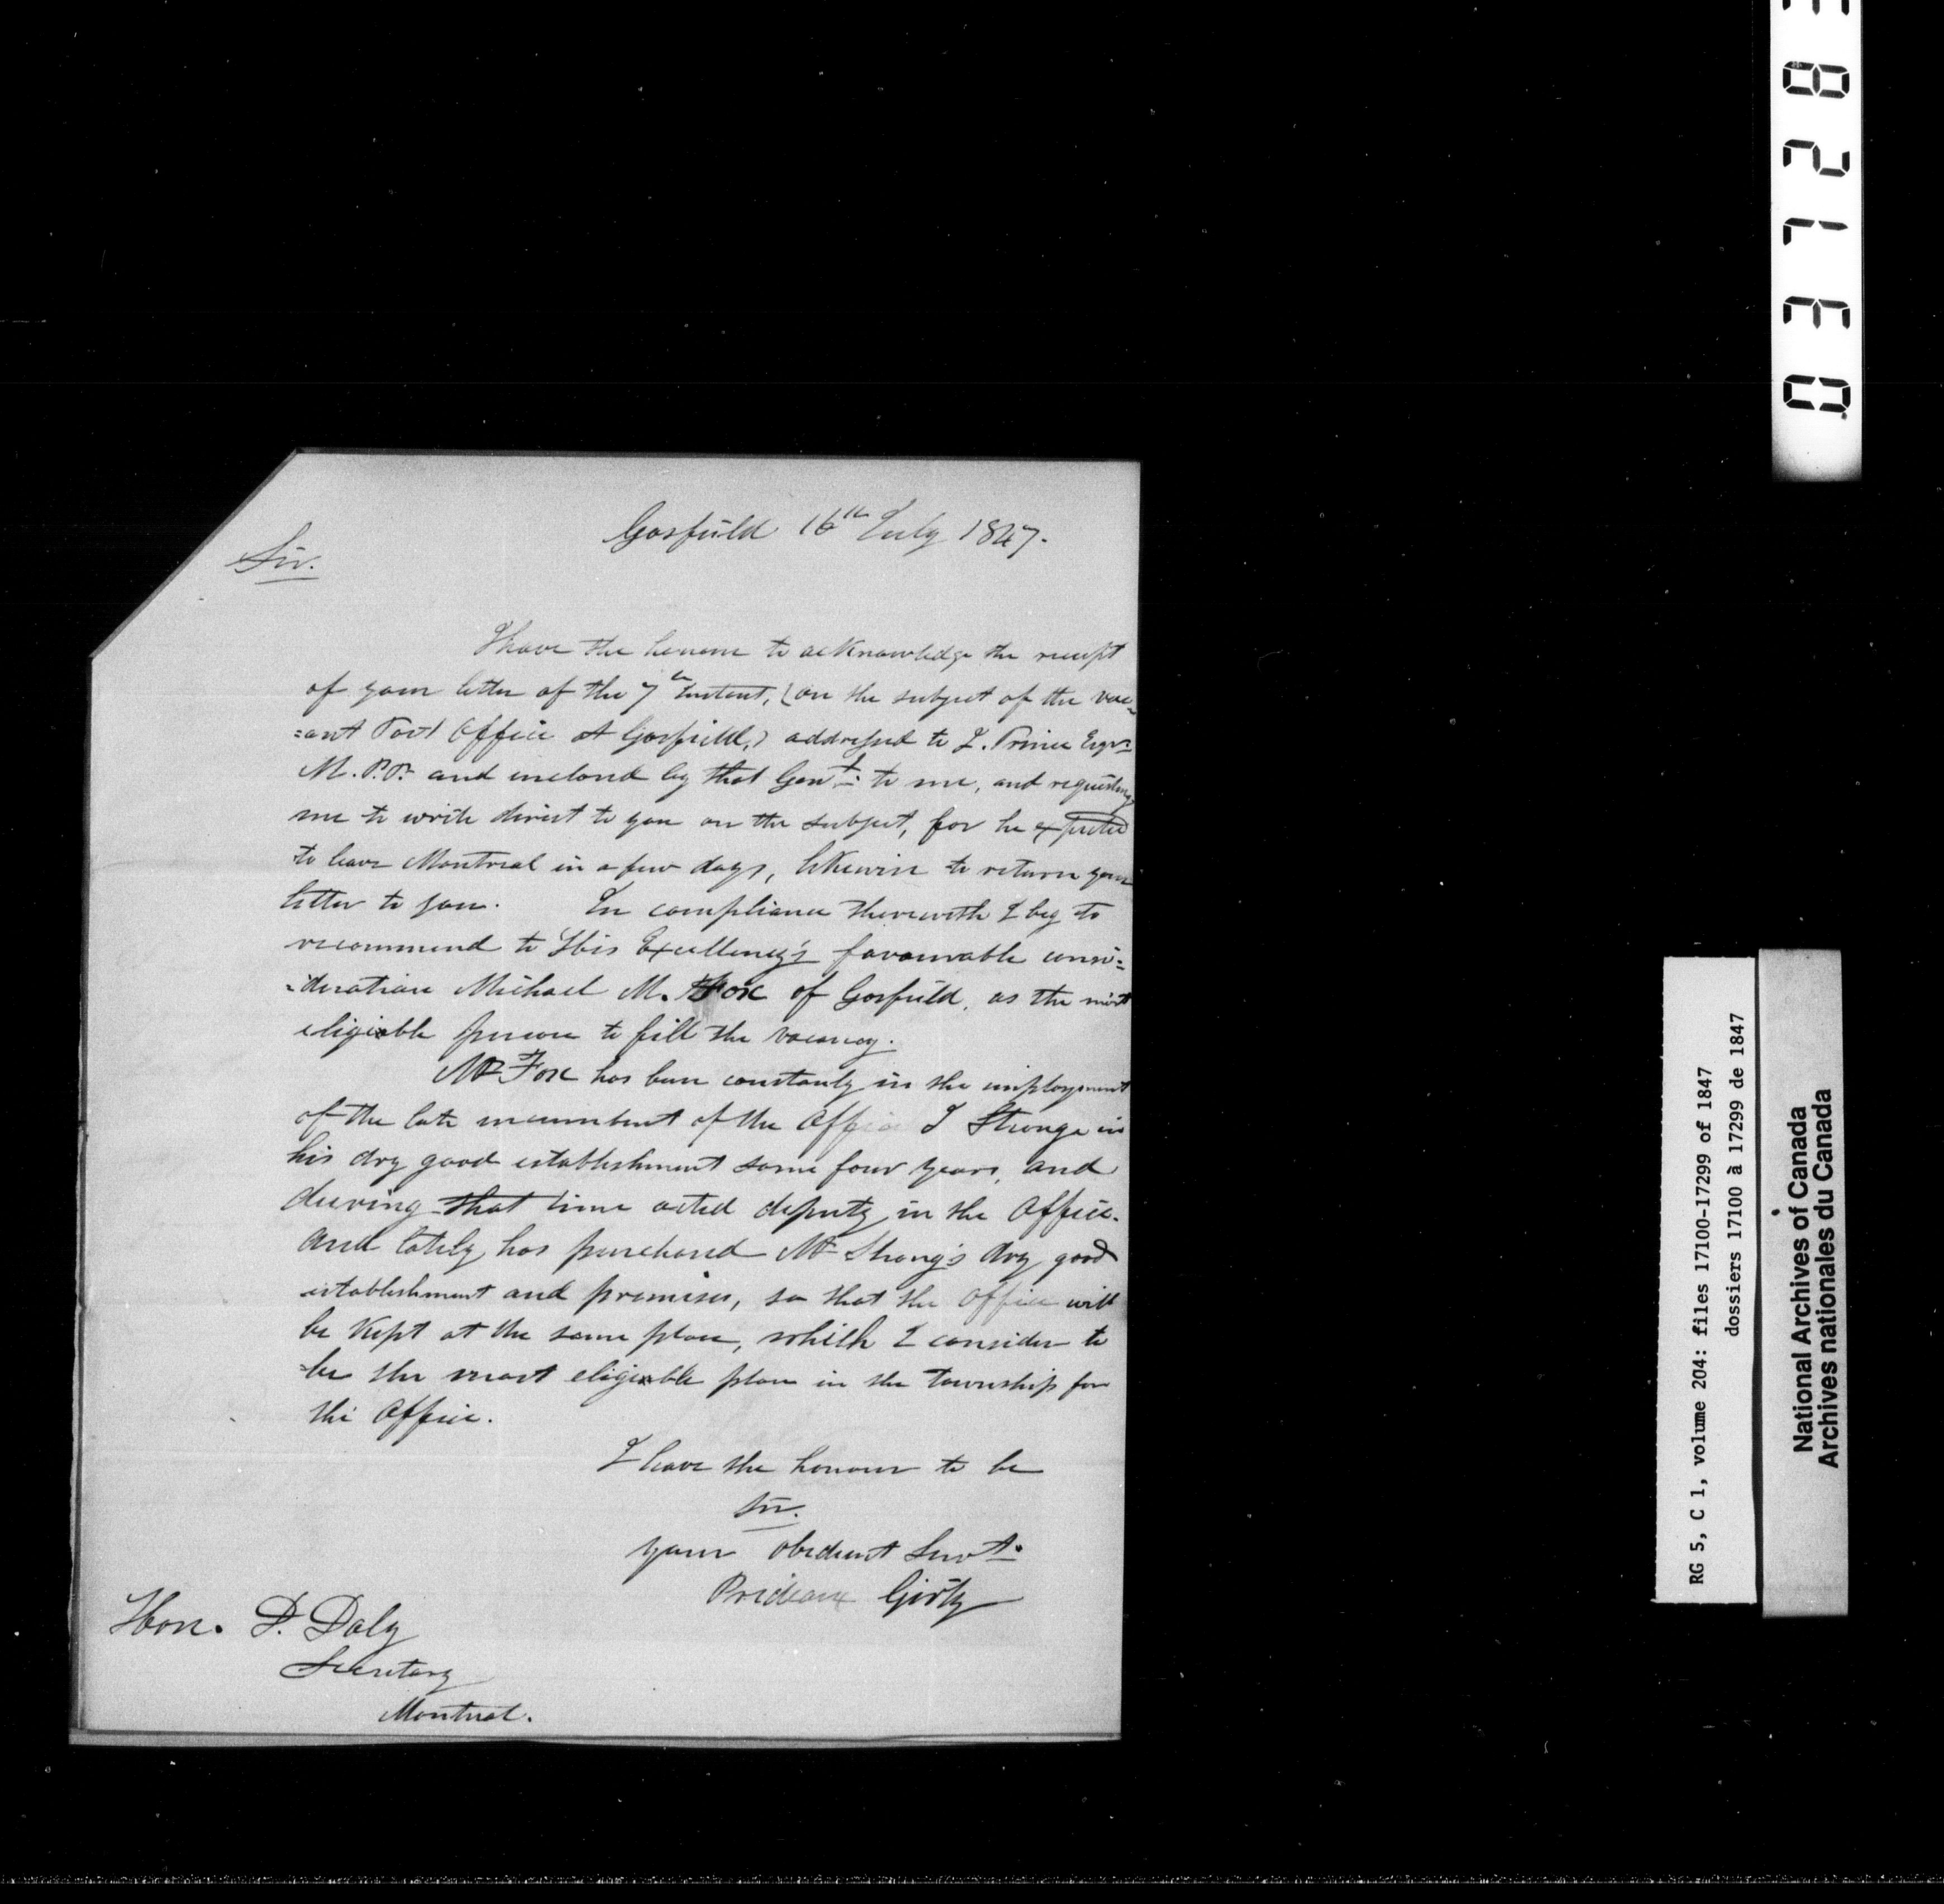 Gosfield 16th July 1847.
Sir.
I have the honour to acknowledge the receipt
of your letter of the 7th Instant, (on the subject of the vac-
=ant Post Office at Gosfield,) addressed to J. Prince Esqr
M.P.P. and inclosed by that Gent. to me, and requesting
me to write direct to you on the subject, for he expected
to leave Montreal in a few days, likewise to return your
letter to you. In compliance therewith I beg to
recommend to His Excellency's favourable consi=
-deration Michael M. Fox of Gosfield, as the most
eligiable person to fill the vacancy.
Mr Fox has been constantly in the imployment
of the late incumbent of the Office J Stronge in
his dry good establishment some four years, and
during that time acted deputy in the Office.
And lately has purchased Mr Strong's dry good
establishment and premises, so that the Office will
be kept at the same place, which I consider to
be the most eligiable place in the Township for
the Office.
I have the honour to be
Sir.
your obedient Servt.
Prideaux Girty
Hon. D. Daly
Secretary
Montreal.
037283
RG 5, C 1, volume 204: files 17100-17299 of 1847
dossiers 17100 à 17299 de 1847
National Archives of Canada
Archives nationales du Canada